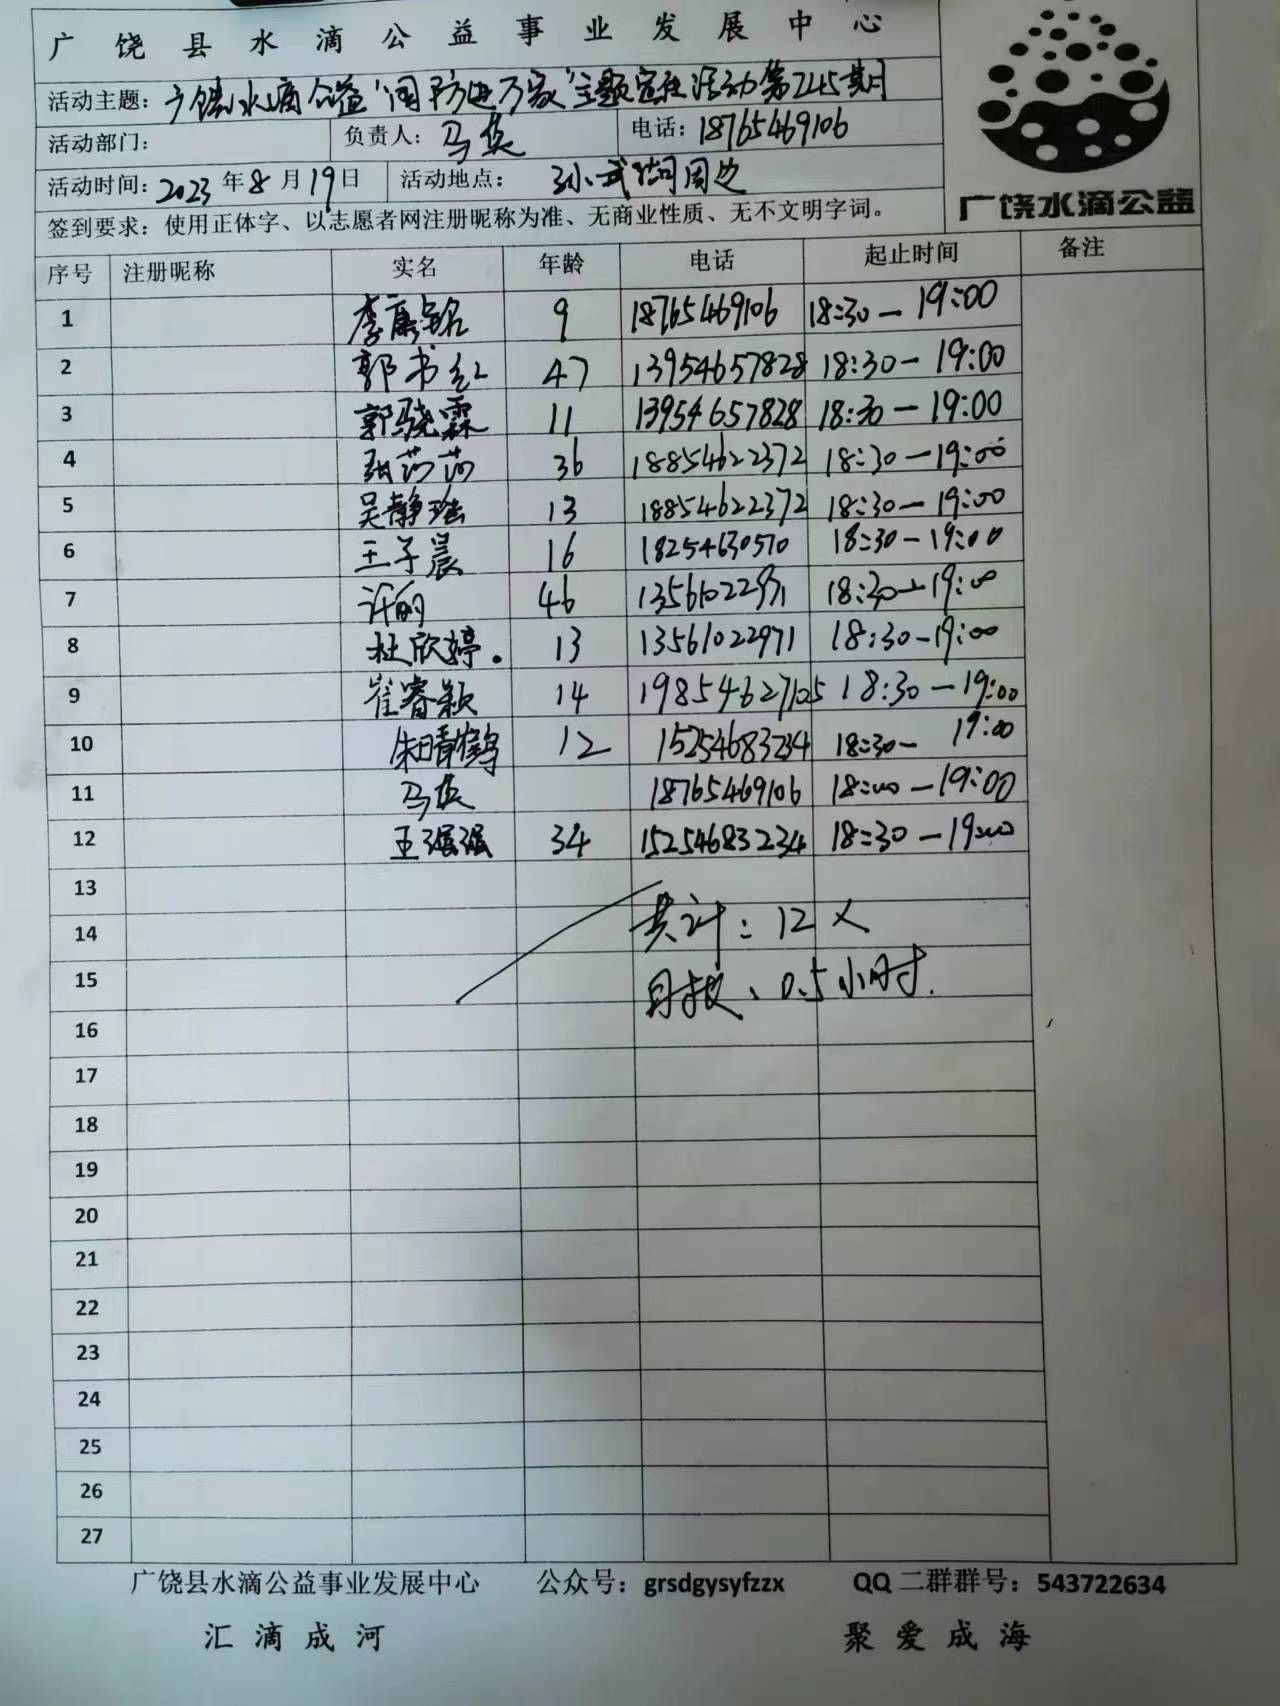 广饶县水滴公益事业发展中心
活动主题：广饶水滴公益"国防进万家"主题宣传活动第245期
活动部门： 负责人：马英 电话：18765469106
活动时间：2023年8月19日 活动地点：孙武湖周边
签到要求：使用正体字、以志愿者网注册昵称为准、无商业性质、无不文明字词。
广饶水滴公益
序号 注册昵称 实名 年龄 电话 起止时间 备注
1 李 铭 9 18765469106 18:30—19:00
2 郭书红 47 13954657828 18:30—19:00
3 郭骁霖 11 13954657828 18:30—19:00
4 张莎莎 36 18854622372 18:30—19:00
5 吴静 13 18854622372 18:30—19:00
6 王子晨 16 18254630570 18:30—19:00
7 许 46 13561022971 18:30—19:00
8 杜欣婷. 13 13561022971 18:30—19:00
9 崔睿颖 14 19854627105 18:30—19:00
10 朱晴鹤 12 15254683234 18:30— 19:00
11 马英 18765469106 18:00—19:00
12 王强强 34 15254683234 18:30—19:00
13
14 共计：12人
15 时长：0.5小时.
16
17
18
19
20
21
22
23
24
25
26
27
广饶县水滴公益事业发展中心 公众号：grsdgysyfzzx QQ二群群号：543722634
汇滴成河 聚爱成海